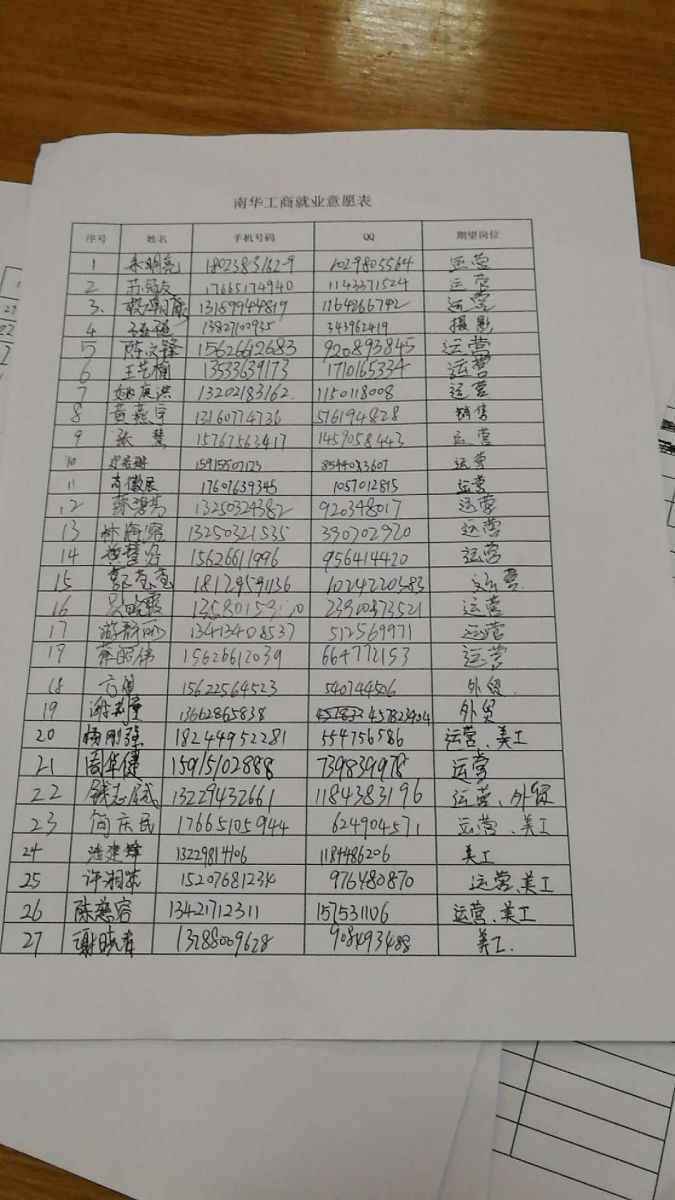 南华工商就业意愿表
序号 姓名 手机号码 QQ 期望岗位
1 18023831629 1029805564 运营
2 17665174940 1143371524 运营
3. 13189944819 1164266742 运营
4 13827102935 343962419 摄影
5 陈文锋 15626612683 920893845 运营
6 王艺楠 13533639173 1710165334 运营
7 姚庭洪 13202183162 1150118008 运营
8 黄燕宇 13160774736 516194828 销售
9 张慧 15767563417 1459058443 运营
10 15915507123 854403607 运营
11 17601639345 1057012815 运营
12 蔡碧芳 13250324382 920348017 运营
13 林海容 13250321535 390702920 运营
14 黄慧容 15626611996 956414420 运营
15 18129591136 1024220583 运营
16 吴晓霞 2390373521 运营
17 游静丽 13413408537 512569971 运营
18 蔡昭伟 15626612039 664772153 运营
18 方健 15622564523 540744506 外贸
19 13662865838 457823904 外贸
20 杨刚强 18244952281 554756586 运营、美工
21 周华健 15915102888 739839978 运营
22 13229432661 1184383196 运营、外贸
23 简庆民 17665105944 624904571 运营、美工
24 潘建锋 13229814106 1184486206 美工
25 许湘 15207681234 976480870 运营、美工
26 陈慧容 13421712311 157531106 运营、美工
27 谢晓春 13288009628 908493488 美工.